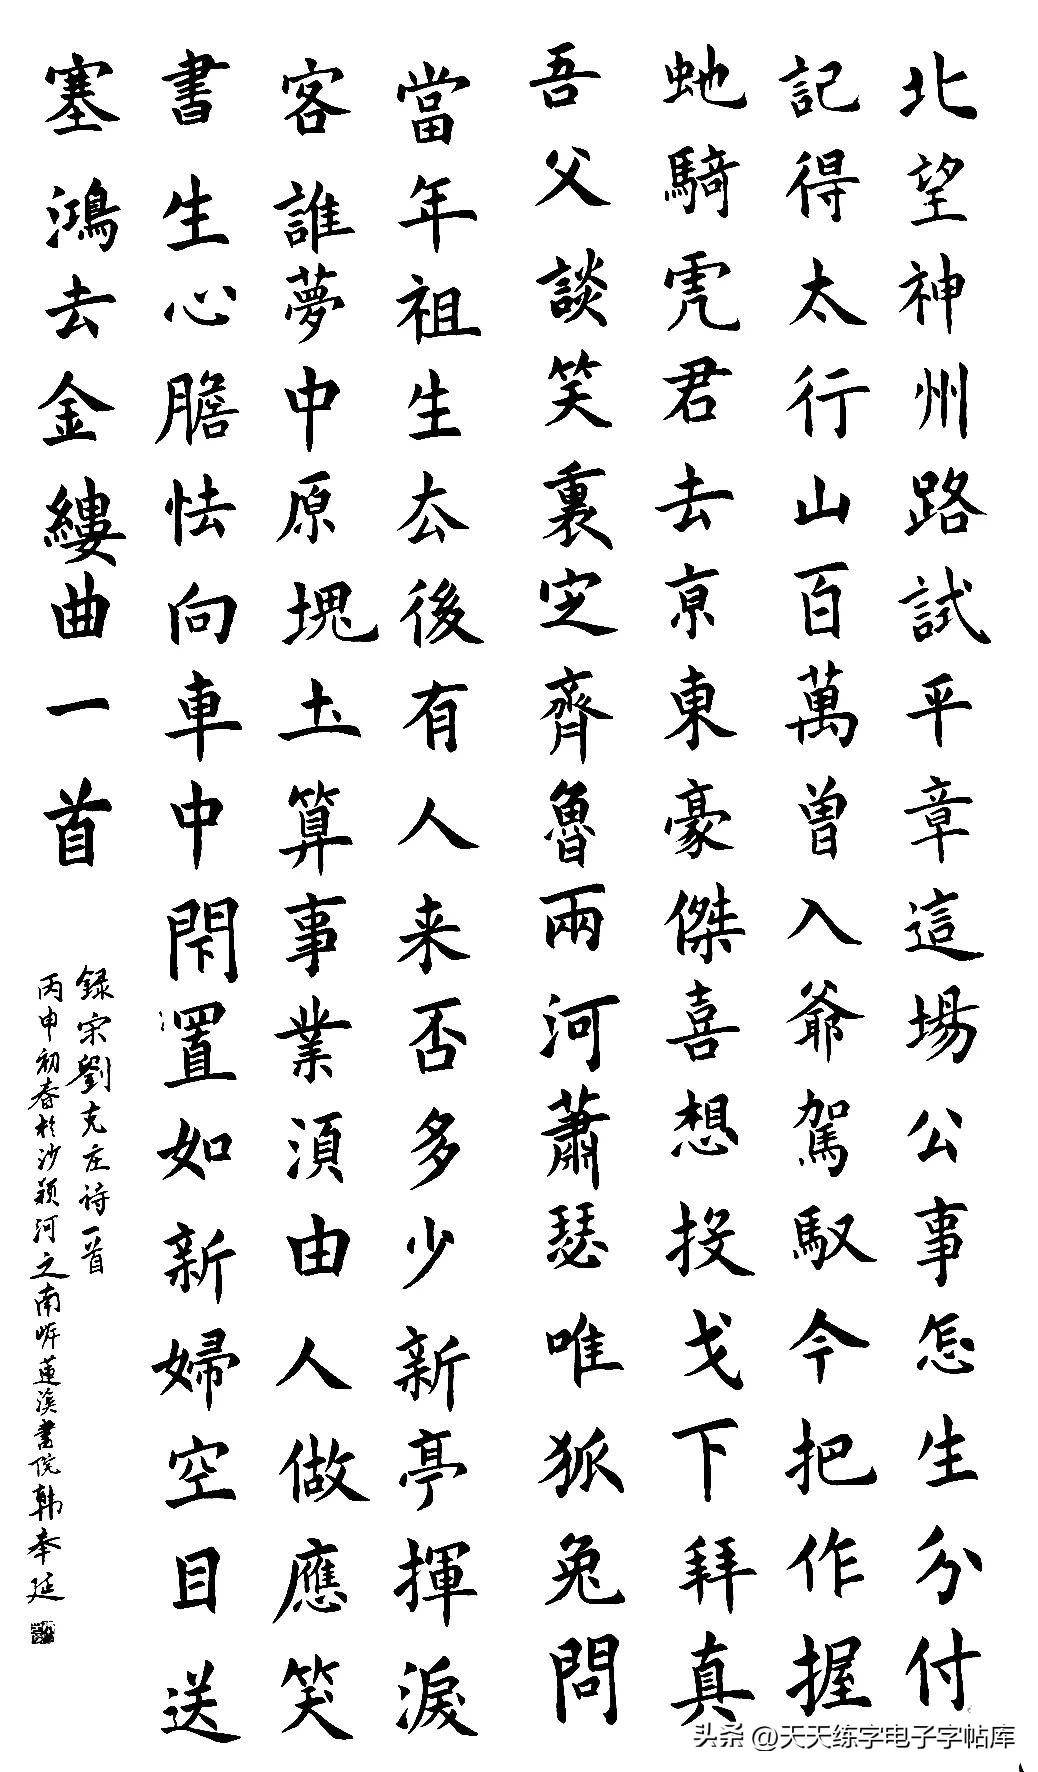 北望神州路試平章這場公事怎生分付
記得太行山百萬曾入爺駕馭今把作握
虵騎虎君去京東豪傑喜想投戈下拜真
吾父談笑裏定齊魯兩河蕭瑟唯狐兔問
當年祖生去後有人来否多少新亭揮淚
客誰夢中原塊土算事業須由人做應笑
書生心膽怯向車中閉置如新婦空目送
塞鴻去金縷曲一首
録宋劉克庄诗一首
丙申初春於沙颍河之南岸蓮溪書院韩奉延
头条 @天天练字电子字帖库